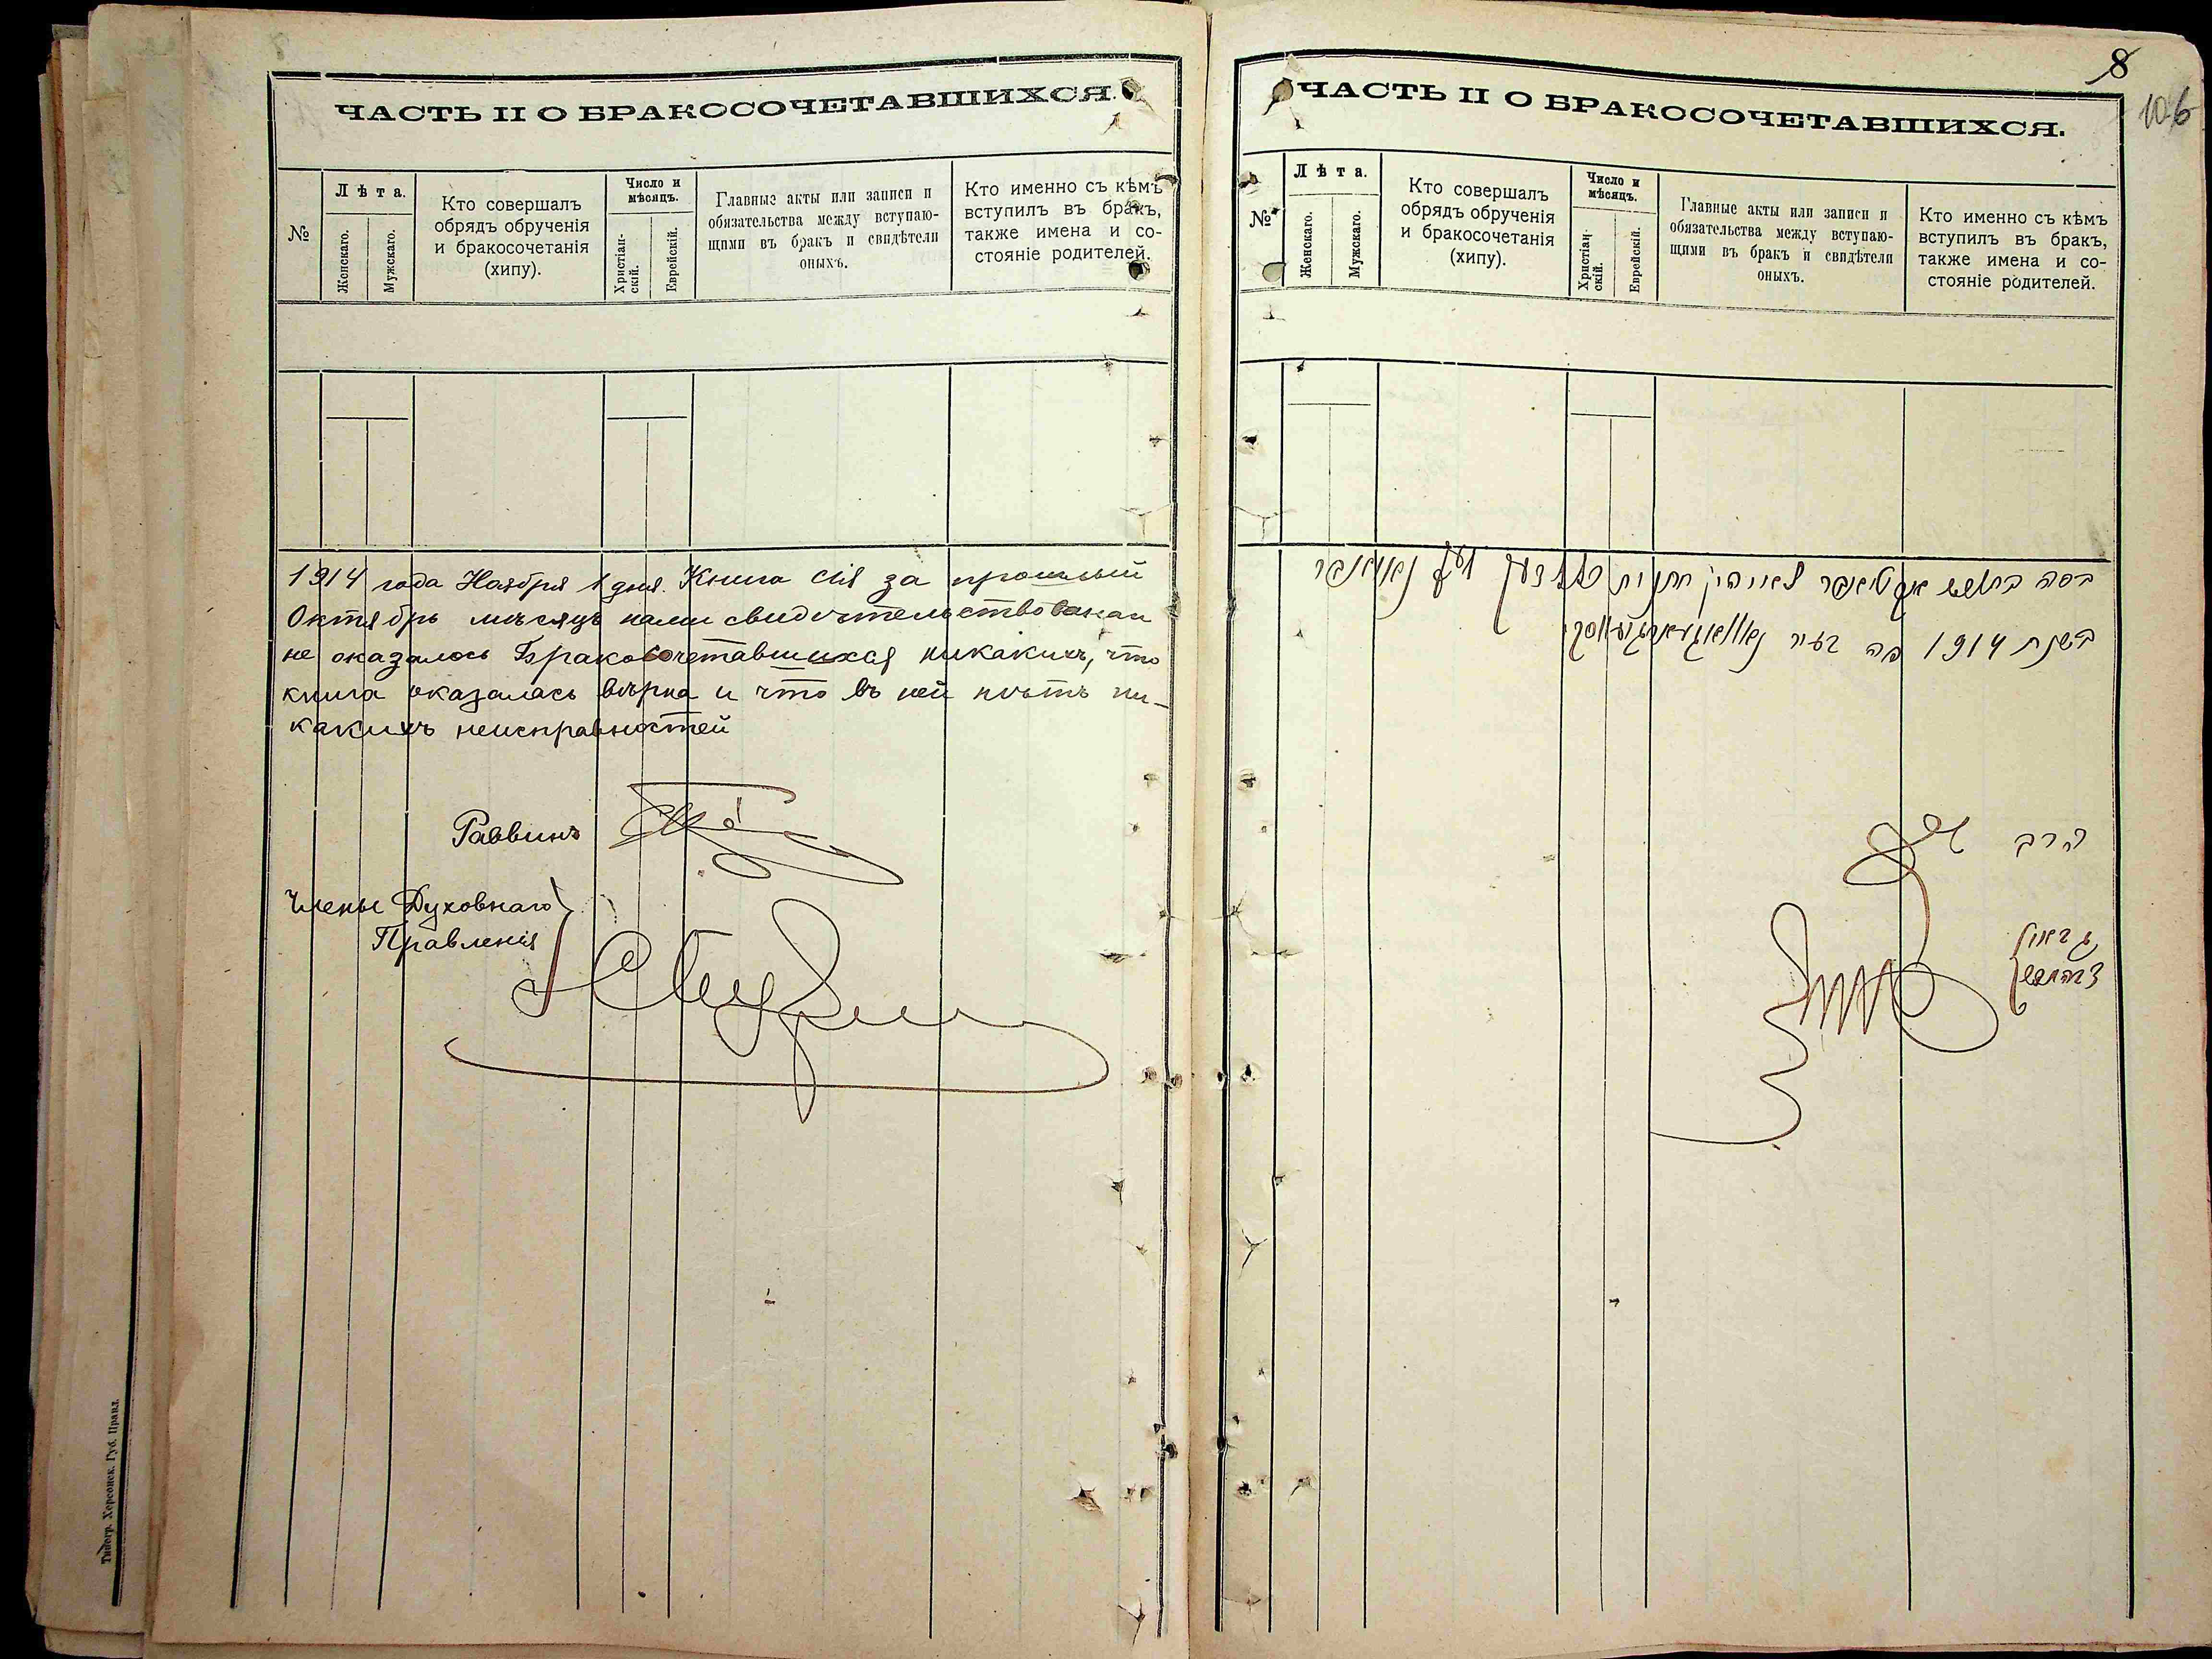 ЧАСТЬ II О БРАКОСОЧЕТАВШИХСЯ.
№
Лѣта.
Женскаго.
Мужскаго.
Кто совершалъ
обрядъ обрученія
и бракосочетанія
(хипу).
Число и
мѣсяцъ.
Христіан-
скій.
Еврейскій.
Главные акты или записи и
обязательства между вступаю-
щими въ бракъ и свидѣтели
оныхъ.
Кто именно съ кѣмъ
вступилъ въ бракъ,
также имена и со-
стояніе родителей.
1914 года Ноября 1 дня. Книга сія за прошлый
Октябрь мѣсяцъ нами свидѣтельствована
не оказалось Бракосочетавшихся никакихъ, что
книга оказалась вѣрна и что въ ней нѣтъ ни-
какихъ неисправностей
Раввинъ
Члены Духовнаго
Правленія
Типогр. Херсонск. Губ. Правл.
8
106
ЧАСТЬ II О БРАКОСОЧЕТАВШИХСЯ.
№
Лѣта.
Женскаго.
Мужскаго.
Кто совершалъ
обрядъ обрученія
и бракосочетанія
(хипу).
Число и
мѣсяцъ.
Христіан-
скій.
Еврейскій.
Главные акты или записи и
обязательства между вступаю-
щими въ бракъ и свидѣтели
оныхъ.
Кто именно съ кѣмъ
вступилъ въ бракъ,
также имена и со-
стояніе родителей.
בחדש אקטאבר
בשנת 1914 פה העיר
הרב